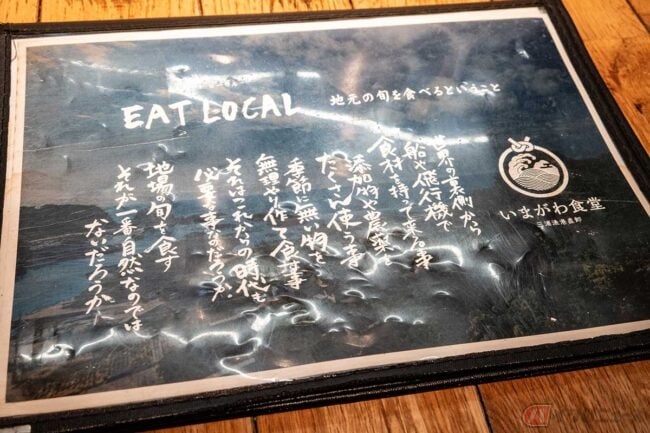 EAT LOCAL
地元の旬を食べるということ
世界の裏側から
船や飛行機で
食材を持って来る事
添加物や農薬を
たくさん使う事
季節に無い物を
無理やり作って食す事
それはこれからの時代も
必要な事なんだろうか
地場の旬を食す
それが一番自然なのでは
ないだろうか
いまがわ食堂